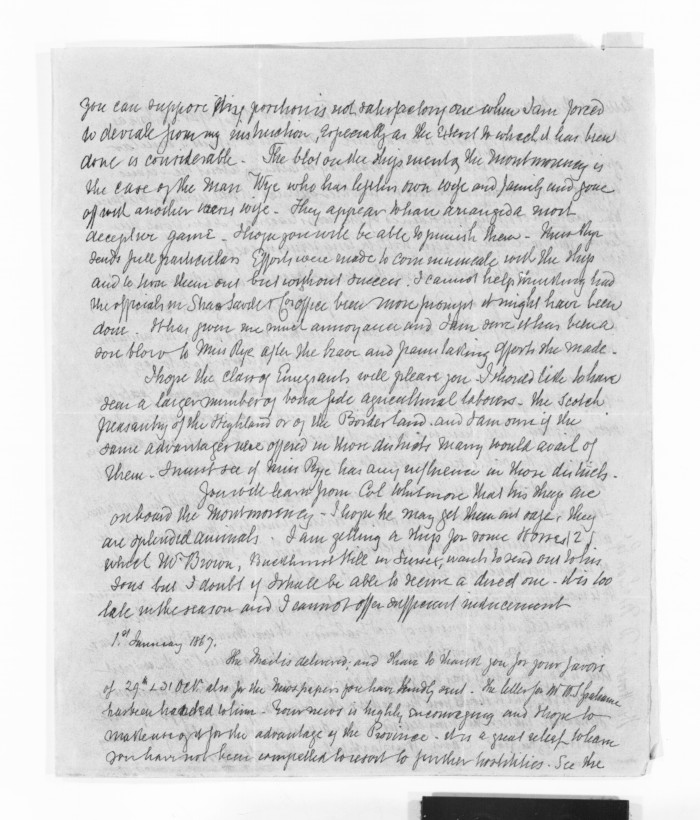 you can support. This portion is not satisfactory one when I am forced
to deviate from my instruction, especially as the extent to which it has been
done is considerable - The blot on the shipment by the Montmorency is
the case of the man Wye who has left his own wife and family and gone
off with another man's wife - They appear to have arranged a most
deceptive game - I hope you will be able to punish them - Miss Rye
sends full particulars Efforts were made to communicate with the ship
and to turn them out but without success. I cannot help thinking had
the officials in Shaw Savill & Co office been more prompt it might have been
done. It has given me much annoyance and I am sure it has been a
sore blow to Miss Rye after the brave and painstaking efforts she made -
I hope the class of Emigrants will please you - I should like to have
seen a larger number of bona fide agricultural laborers - the Scotch
peasantry of the Highland or of the Border land - and I am sure if the
same advantages were offered in those districts many would avail of
them - I must see if Miss Rye has any influence in those districts -
You will learn from Col Whitmore that his sheep are
on board the Montmorency - I hope he may get them out safe, they
are splendid animals. I am getting a ship for some Horses (2)
which Mr Brown, Buckhurst Hill in Sussex, wants to send out to his
Sons but I doubt if I shall be able to secure a direct one - it is too
late in the season and I cannot offer sufficient inducement
1st January 1867.
The Mail is delivered, and I have to thank you for your favors
of 29th & 31 Oct. also for the Newspapers you have kindly sent - The letter for Mr W S Grahame
has been handed to him - Your news is highly encouraging and I hope to
make use of it for the advantage of the Province - it is a great relief to learn
you have not been compelled to resort to further hostilities - See the